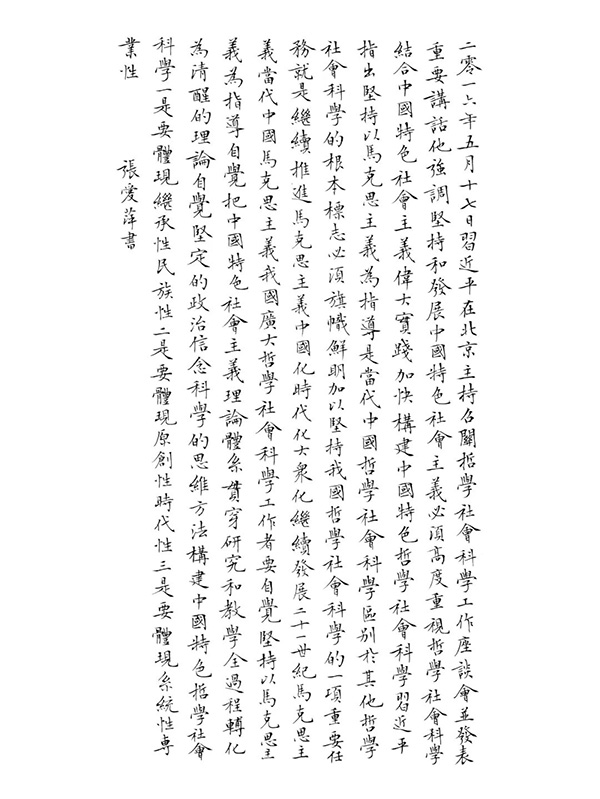 二零一六年五月十七日習近平在北京主持召開哲學社會科學工作座談會並發表
重要講話他強調堅持和發展中國特色社會主義必須高度重視哲學社會科學
結合中國特色社會主義偉大實踐加快構建中國特色哲學社會科學習近平
指出堅持以馬克思主義為指導是當代中國哲學社會科學區別於其他哲學
社會科學的根本標志必須旗幟鮮明加以堅持我國哲學社會科學的一項重要任
務就是繼續推進馬克思主義中國化時代化大衆化繼續發展二十一世紀馬克思主
義當代中國馬克思主義我國廣大哲學社會科學工作者要自覺堅持以馬克思主
義為指導自覺把中國特色社會主義理論體系貫穿研究和教學全過程轉化
為清醒的理論自覺堅定的政治信念科學的思維方法構建中國特色哲學社會
科學一是要體現繼承性民族性二是要體現原創性時代性三是要體現系統性專
業性
張愛萍書